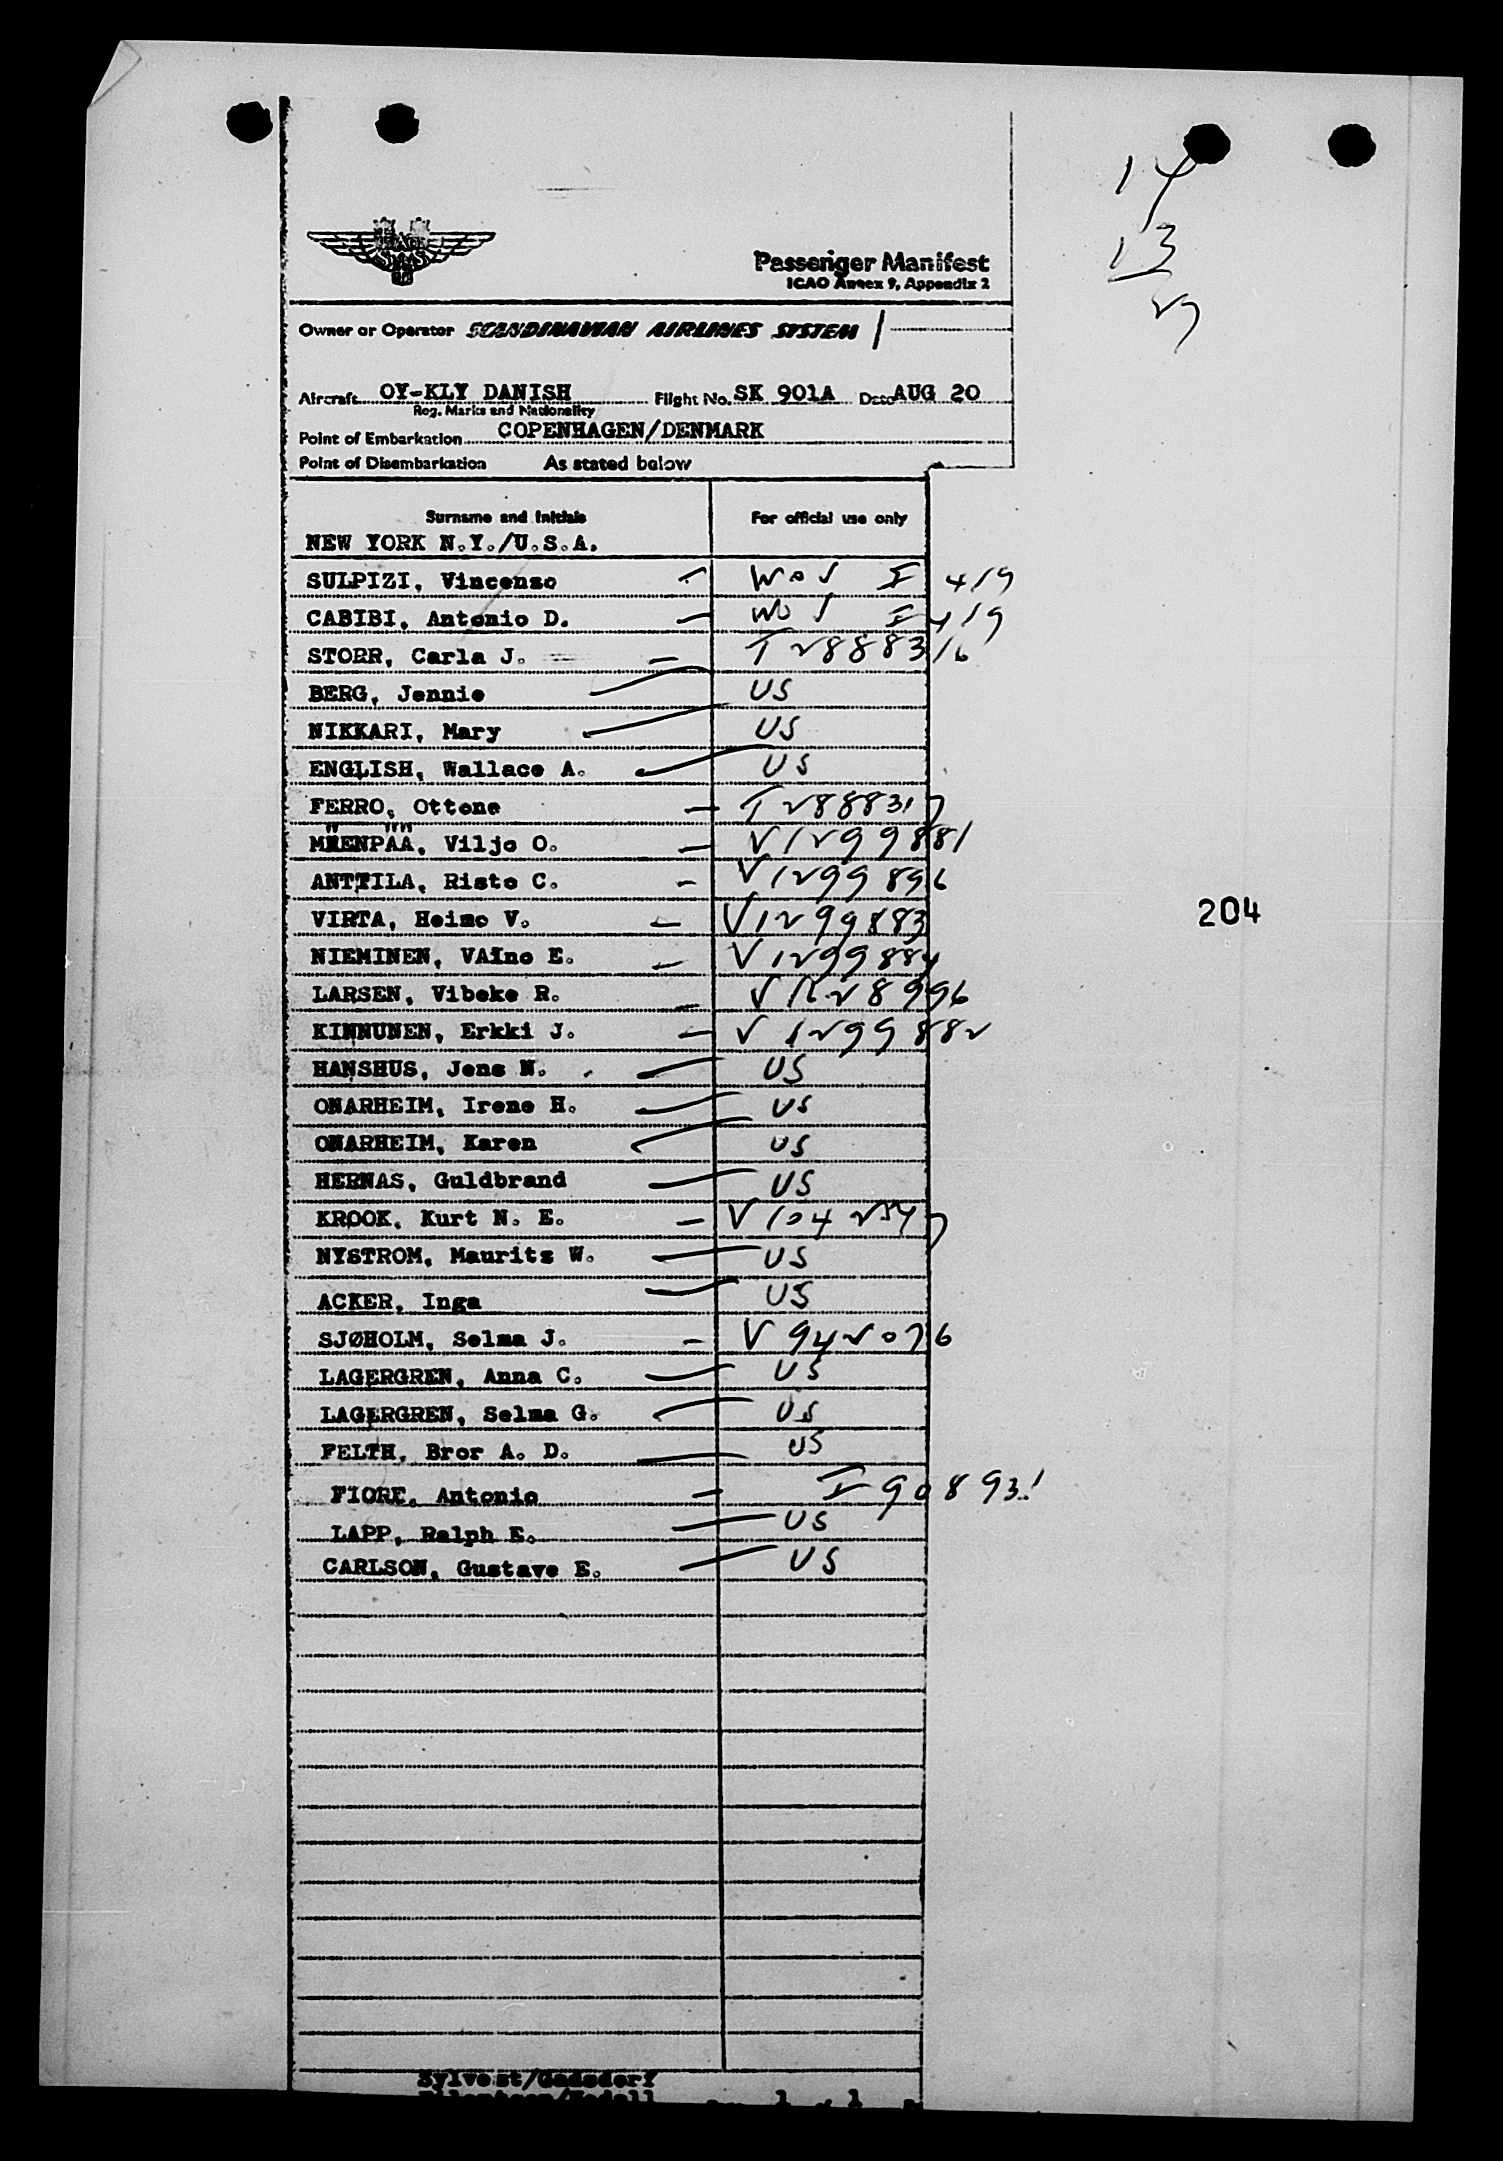 14
13
27
Passenger Manifest
ICAO Annex 9, Appendix 2
Owner or Operator SCANDINAVIAN AIRLINES SYSTEM
Aircraft OY-KLY DANISH Flight No. SK 901A Date AUG 20
Reg. Marks and Nationality
Point of Embarkation COPENHAGEN/DENMARK
Point of Disembarkation As stated below
Surname and Initials For official use only
NEW YORK N.Y./U.S.A.
SULPIZI, Vincenzo I 419
CABIBI, Antonio D. I 419
STORR, Carla J. T 2888316
BERG, Jennie US
NIKKARI, Mary US
ENGLISH, Wallace A. US
FERRO, Ottone T 2888317
MÄENPÄÄ, Viljo O. V 1299881
ANTTILA, Risto C. V 1299896
VIRTA, Heimo V. V 1299883
NIEMINEN, VÄino E. V 1299884
LARSEN, Vibeke R.
KINNUNEN, Erkki J. V 1299882
HANSHUS, Jens N. US
ONARHEIM, Irene H. US
ONARHEIM, Karen US
HERNAS, Guldbrand US
KROOK, Kurt N. E. V 1042547
NYSTROM, Maurits W. US
ACKER, Inga US
SJØHOLM, Selma J. V 942076
LAGERGREN, Anna C. US
LAGERGREN, Selma G. US
FELTH, Bror A. D. US
FIORE, Antonio I 908931
LAPP, Ralph E. US
CARLSON, Gustave E. US
204
Sylvest/Gadsdorf
1 1